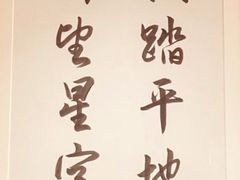 踏平地
望星空